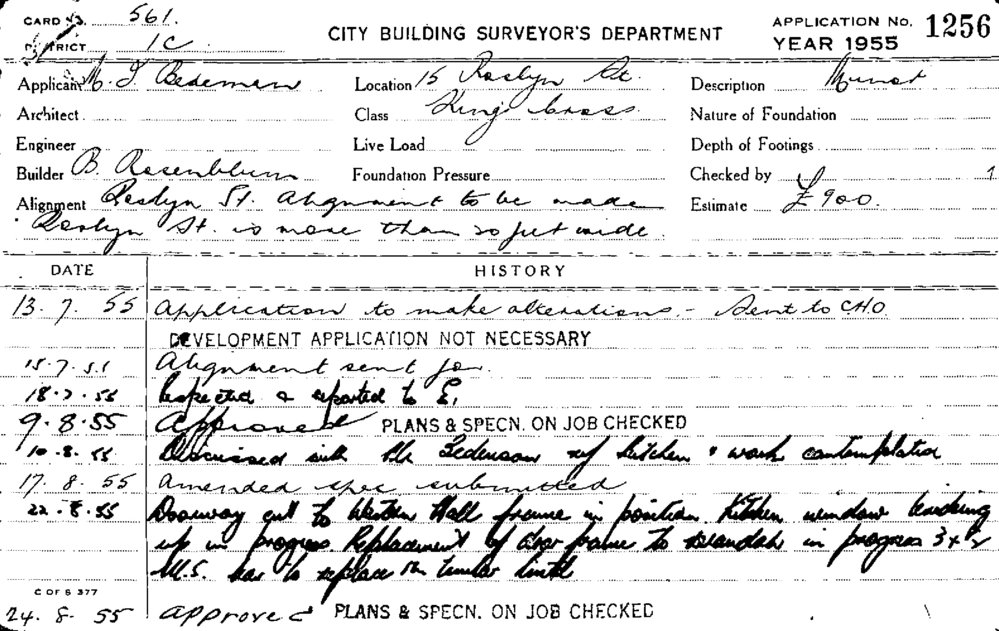 CARD No. 561.
DISTRICT 1C
CITY BUILDING SURVEYOR'S DEPARTMENT
APPLICATION No. 1256
YEAR 1955
Applicant
Location 15 Roslyn St.
Description
Architect
Class Kings Cross
Nature of Foundation
Engineer
Live Load
Depth of Footings
Builder B. Rosenblum
Foundation Pressure
Checked by
Alignment Roslyn St. alignment to be made
Estimate £900.
Roslyn St. is more than 20 feet wide.
DATE HISTORY
13. 7. 55 Application to make alterations. - Sent to C.H.O.
DEVELOPMENT APPLICATION NOT NECESSARY
15.7.55 Alignment sent for.
18.7.55 Inspected & reported to
9.8.55 Approved PLANS & SPECN. ON JOB CHECKED
10.8.55 Discussed with Mr kitchen & work contemplated
17. 8. 55 Amended spec submitted
22.8.55 Doorway cut to Western Wall frame in position. Kitchen window bricking
up in progress. Replacement of door frame to verandah in progress 3x
M.S. bar to replace timber lintel
C OF S 377
24. 8. 55 approved PLANS & SPECN. ON JOB CHECKED